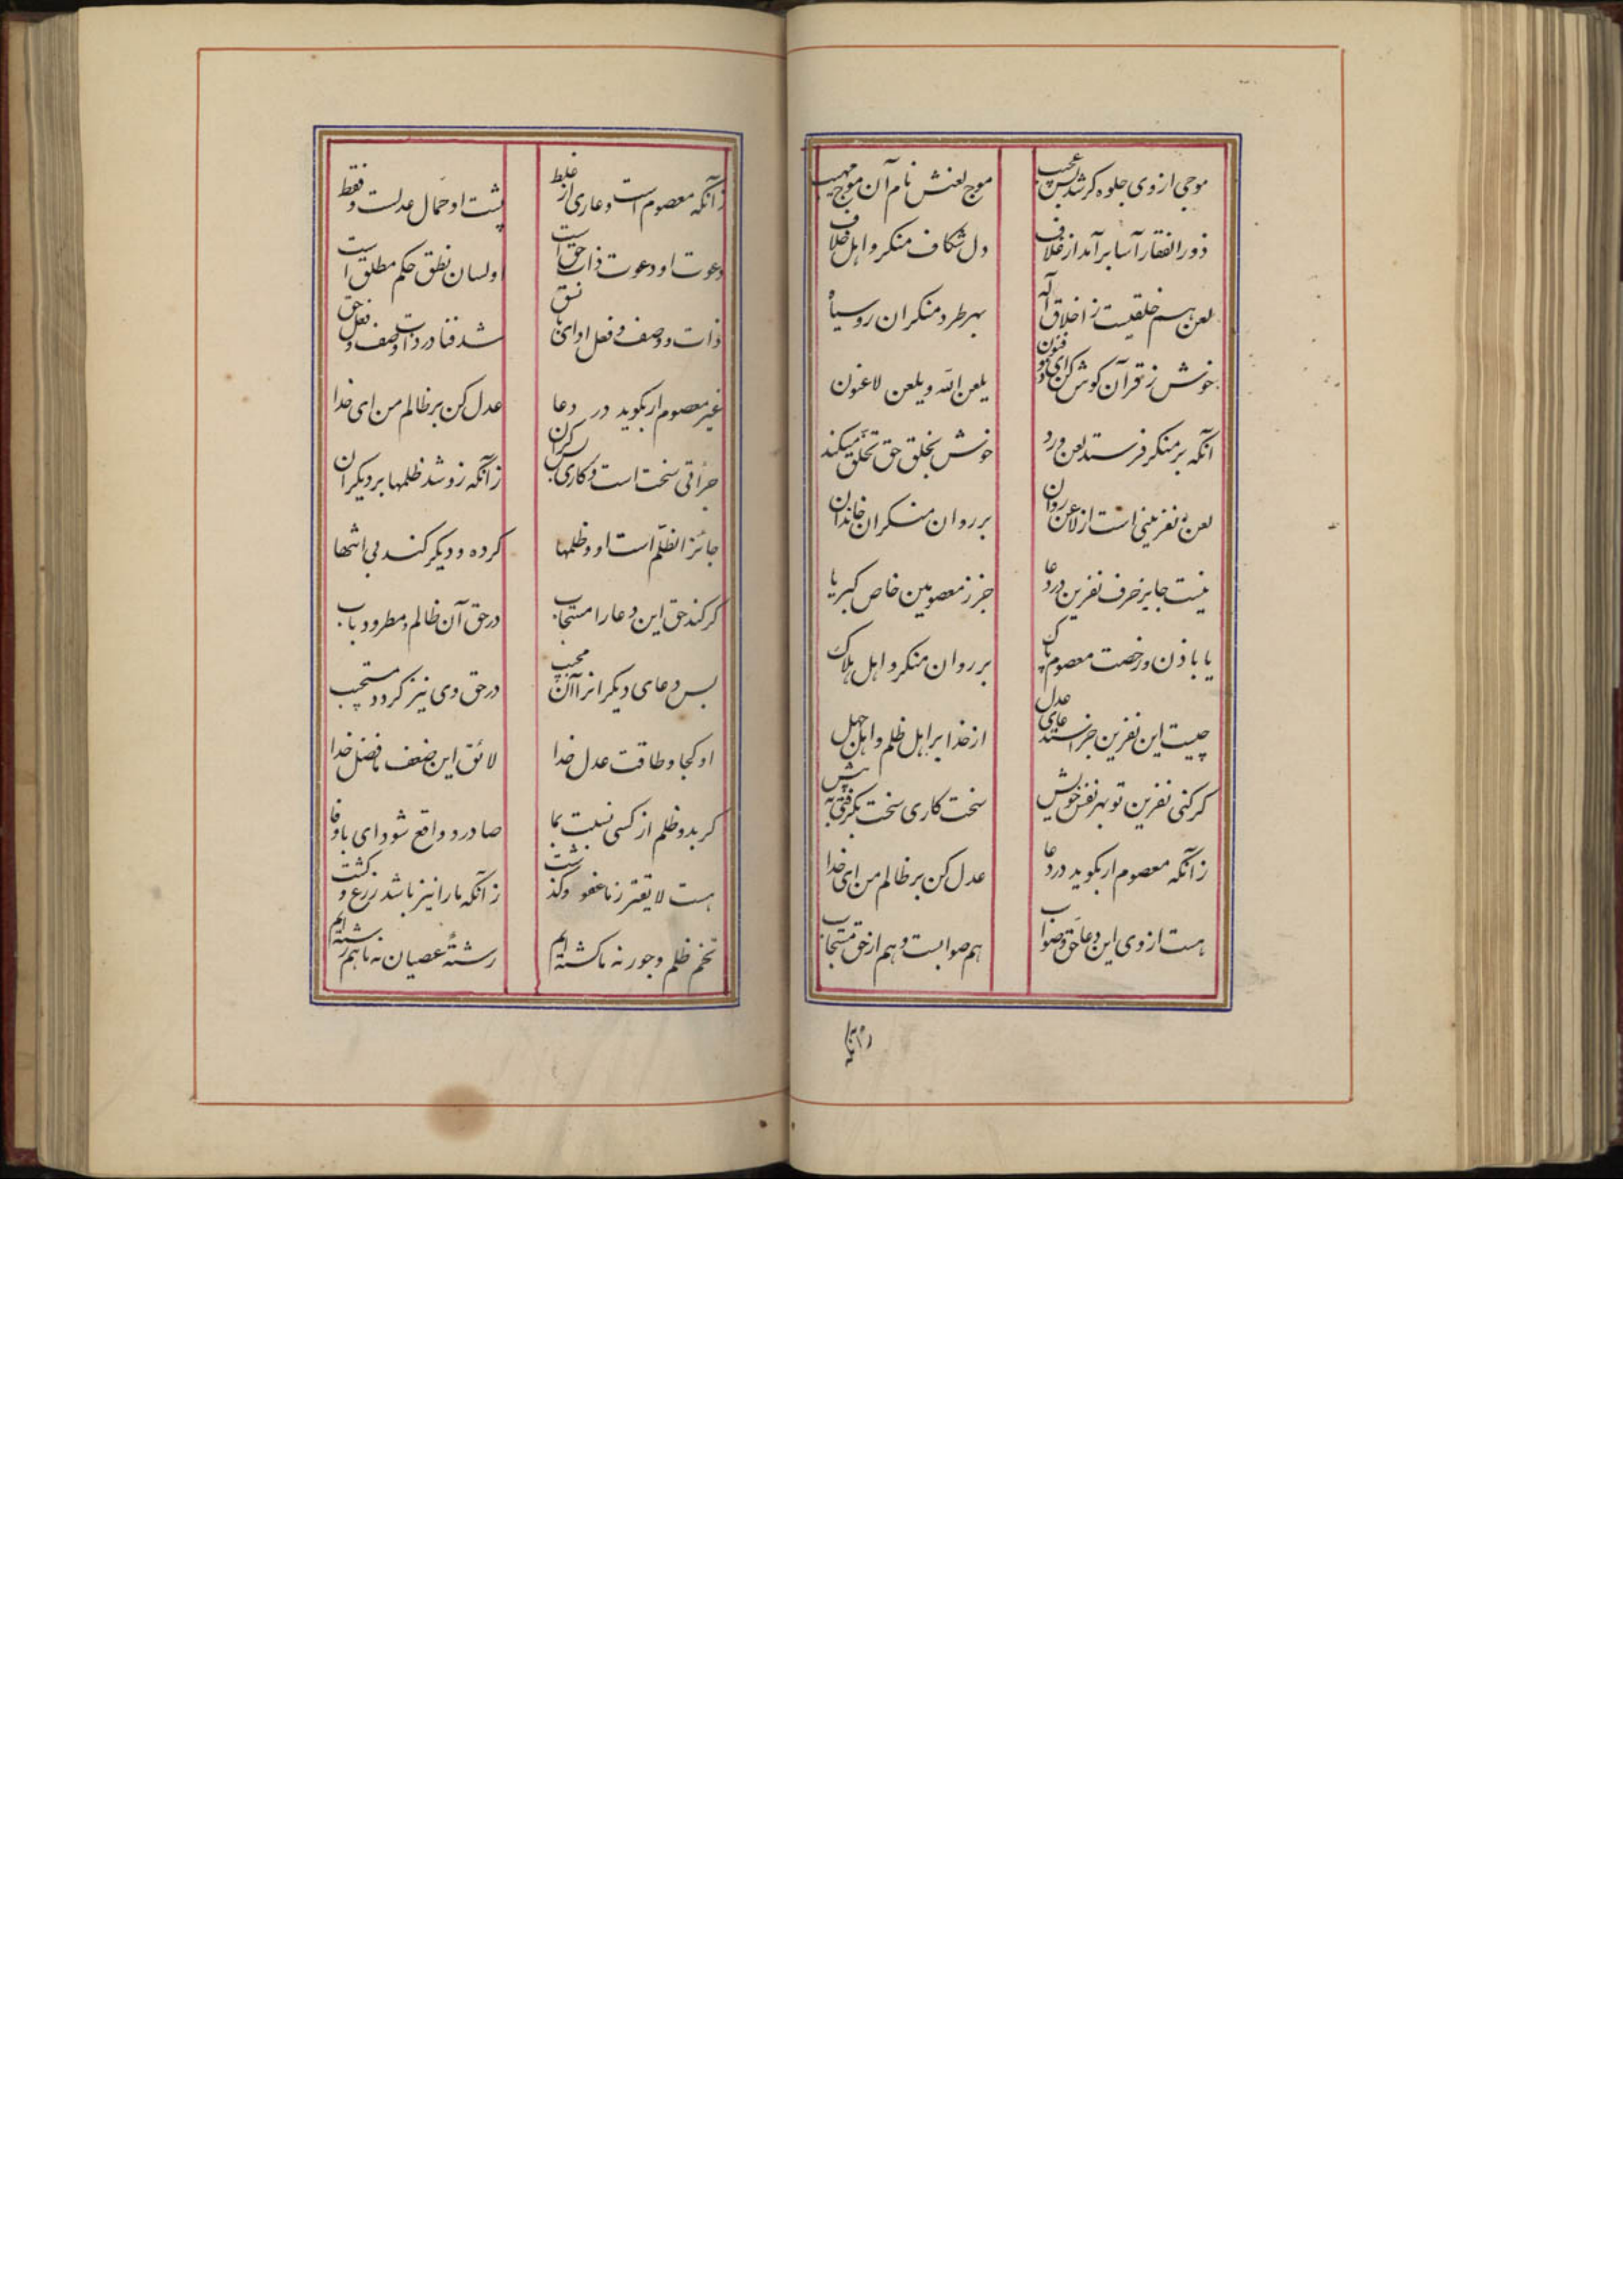 موجی ازوی جلوه کر شد بس عجب
موج لعنش نام آن موج مهیب
ذور الفقار آسا بر آمد از غلاف
دل شکاف منکر و اهل خلاف
لعن هم خلقیست ز اخلاق آله
بهر طرد منکران رو سیاه
خوش ز قرآن کوش کن ای ذو فنون
یلعن الله و یلعن لاعنون
آنکه بر منکر فرستد لعن و رد
خوش بخلق حق تخلق میکند
لعن نفرینی است از لاعن روان
بر روان منکران خاندان
نیست جایز حرف نفرین در دعا
جز ز معصومین خاص کبریا
یا باذن و رخصت معصوم پاک
بر روان منکر و اهل هلاک
چیست این نفرین جز استدعای عدل
از خدا بر اهل ظلم و اهل جهل
کر کنی نفرین تو بهر نفس خویش
سخت کاری سخت بکرفتی به پیش
زانکه معصوم ار بکوید در دعا
عدل کن بر ظالم من ای خدا
هست از وی این دعا حق و صواب
هم صوابست و هم از حق مستجاب
زانکه
زانکه معصوم است و عاری از غلط
پشت او حمال عدلست و فقط
دعوت او دعوت ذات حق است
او لسان نطق حکم مطلق است
ذات و وصف و فعل او ای با نسق
شد فنا در ذات و وصف و فعل حق
غیر معصوم ار بکوید در دعا
عدل کن بر ظالم من ای خدا
جرأتی سخت است و کاری بس کران
زانکه زو شد ظلمها بر دیکران
جائز الظلم است او و ظلمها
کرده و دیکر کند بی انتها
کر کند حق این دعا را مستجاب
در حق آن ظالم و مطرود باب
بس دعای دیکر انرا آن مجیب
در حق وی نیز کردد مستجیب
او کجا و طاقت عدل خدا
لائق این ضعف ما فضل خدا
کر بد و ظلم از کسی نسبت بما
صادر و واقع شود ای با وفا
هست لایقتر ز ما عفو و کذشت
زانکه ما را نیز باشد زرع و کشت
تخم ظلم و جور نه ما کشته ایم
رشتهٔ عصیان نه ما هم رشته ایم